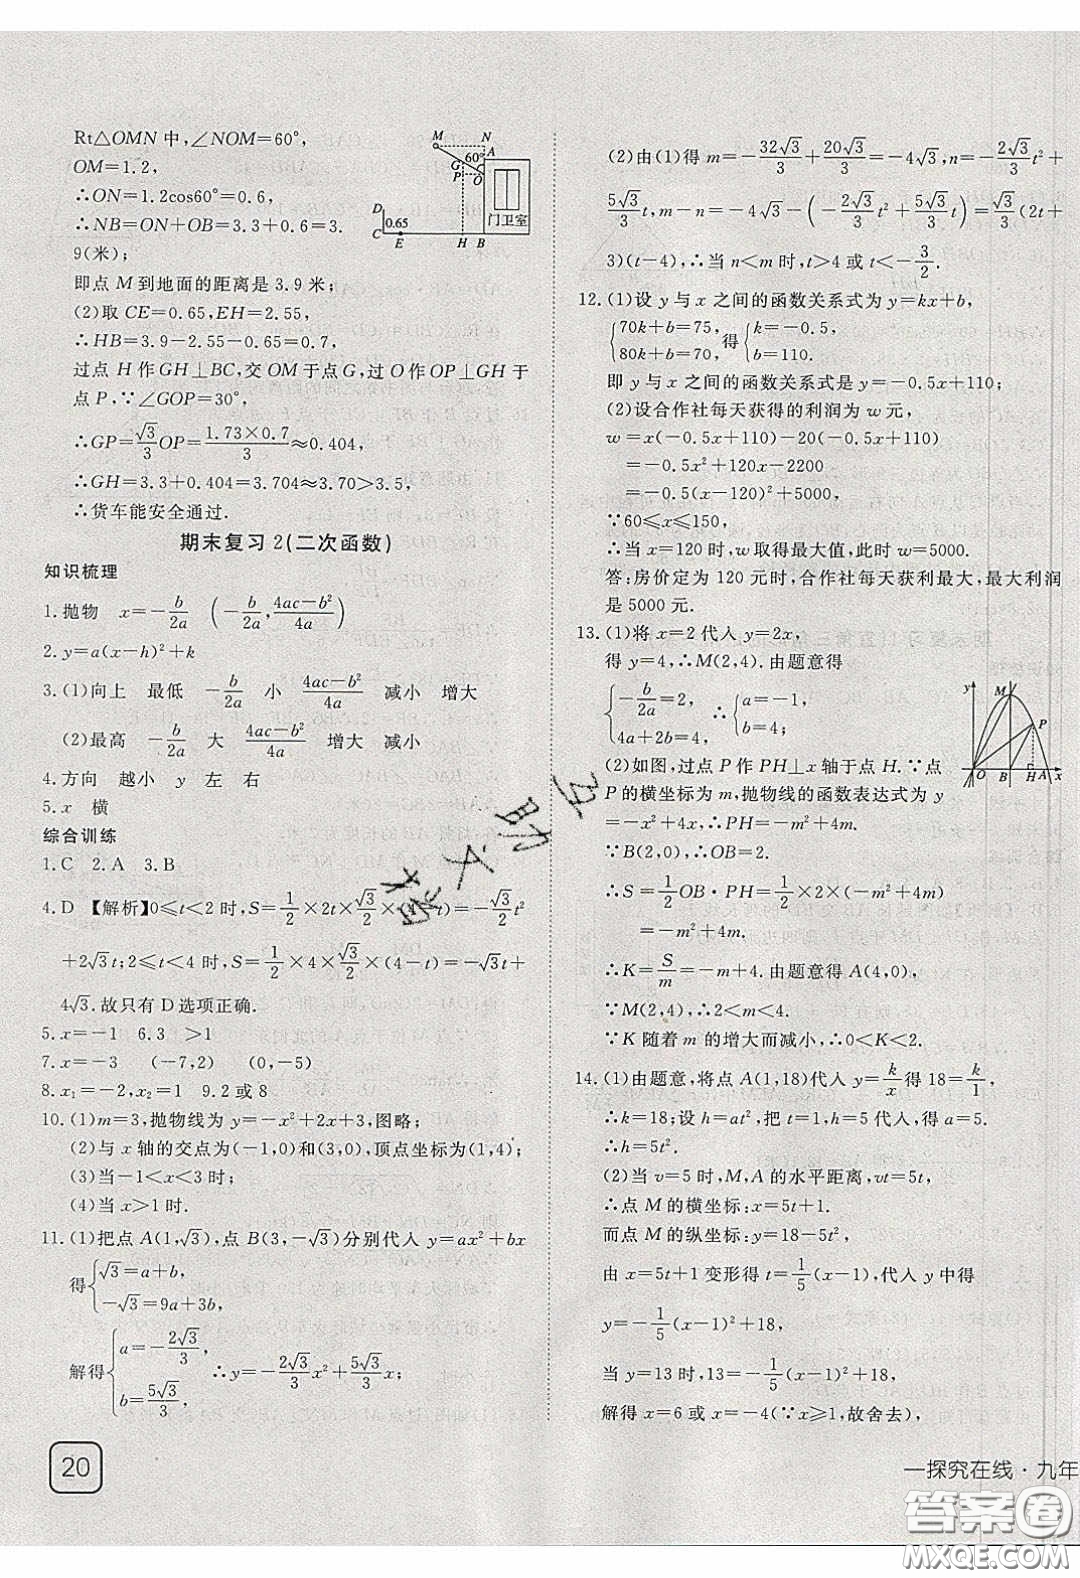 Rt△OMN 中,∠NOM=60°,
OM=1.2,
∴ON=1.2cos60°=0.6,
∴NB=ON+OB=3.3+0.6=3.
9(米);
即点 M 到地面的距离是 3.9 米;
(2)取 CE=0.65,EH=2.55,
∴HB=3.9-2.55-0.65=0.7,
过点 H 作 GH⊥BC,交 OM 于点 G,过 O 作 OP⊥GH 于
点 P,∵∠GOP=30°,
∴GP=√3/3 OP=(1.73×0.7)/3≈0.404,
∴GH=3.3+0.404=3.704≈3.70>3.5,
∴货车能安全通过.
M N A 60° G P O D 0.65 门卫室 C E H B
期末复习 2(二次函数)
知识梳理
1.抛物 x=-b/2a (-b/2a,(4ac-b²)/4a)
2.y=a(x-h)²+k
3.(1)向上 最低 -b/2a (4ac-b²)/4a 减小 增大
(2)最高 -b/2a 大 (4ac-b²)/4a 增大 减小
4.方向 越小 y 左 右
5.x 横
综合训练
1.C 2.A 3.B
4.D 【解析】0≤t<2 时,S=1/2×2t×√3/2×(4-t)=-√3/2 t²
+2√3t;2≤t<4 时,S=1/2×4×√3/2×(4-t)=-√3t+
4√3.故只有 D 选项正确.
5.x=-1 6.3 >1
7.x=-3 (-7,2) (0,-5)
8.x₁=-2,x₂=1 9.2 或 8
10.(1)m=3,抛物线为 y=-x²+2x+3,图略;
(2)与 x 轴的交点为(-1,0)和(3,0),顶点坐标为(1,4);
(3)当-1<x<3 时;
(4)当 x>1 时.
11.(1)把点 A(1,√3),点 B(3,-√3)分别代入 y=ax²+bx
得{√3=a+b,
-√3=9a+3b,
解得{a=-2√3/3,
b=5√3/3, ∴y=-2√3/3 x²+5√3/3 x;
20
(2)由(1)得 m=-32√3/3+20√3/3=-4√3,n=-2√3/3 t²+
5√3/3 t,m-n=-4√3-(-2√3/3 t²+5√3/3 t)=√3/3(2t+
3)(t-4),∴当 n<m 时,t>4 或 t<-3/2.
12.(1)设 y 与 x 之间的函数关系式为 y=kx+b,
{70k+b=75,
80k+b=70, 得{k=-0.5,
b=110.
即 y 与 x 之间的函数关系式是 y=-0.5x+110;
(2)设合作社每天获得的利润为 w 元,
w=x(-0.5x+110)-20(-0.5x+110)
=-0.5x²+120x-2200
=-0.5(x-120)²+5000,
∵60≤x≤150,
∴当 x=120 时,w 取得最大值,此时 w=5000.
答:房价定为 120 元时,合作社每天获利最大,最大利润
是 5000 元.
13.(1)将 x=2 代入 y=2x,
得 y=4,∴M(2,4).由题意得
{-b/2a=2,
4a+2b=4, ∴{a=-1,
b=4;
y M P O B H A x
(2)如图,过点 P 作 PH⊥x 轴于点 H.∵点
P 的横坐标为 m,抛物线的函数表达式为 y
=-x²+4x,∴PH=-m²+4m.
∵B(2,0),∴OB=2.
∴S=1/2 OB·PH=1/2×2×(-m²+4m)
=-m²+4m.
∴K=S/m=-m+4.由题意得 A(4,0),
∵M(2,4),∴2<m<4.
∵K 随着 m 的增大而减小,∴0<K<2.
14.(1)由题意,将点 A(1,18)代入 y=k/x 得 18=k/1,
∴k=18;设 h=at²,把 t=1,h=5 代入,得 a=5.
∴h=5t².
(2)当 v=5 时,M,A 的水平距离,vt=5t;
∴点 M 的横坐标:x=5t+1
而点 M 的纵坐标:y=18-5t²,
由 x=5t+1 变形得 t=1/5(x-1),代入 y 中得
y=-1/5(x-1)²+18,
当 y=13 时,13=-1/5(x-1)²+18,
解得 x=6 或 x=-4(∵x≥1,故舍去),
一探究在线·九年
答案圈
MXQE.COM